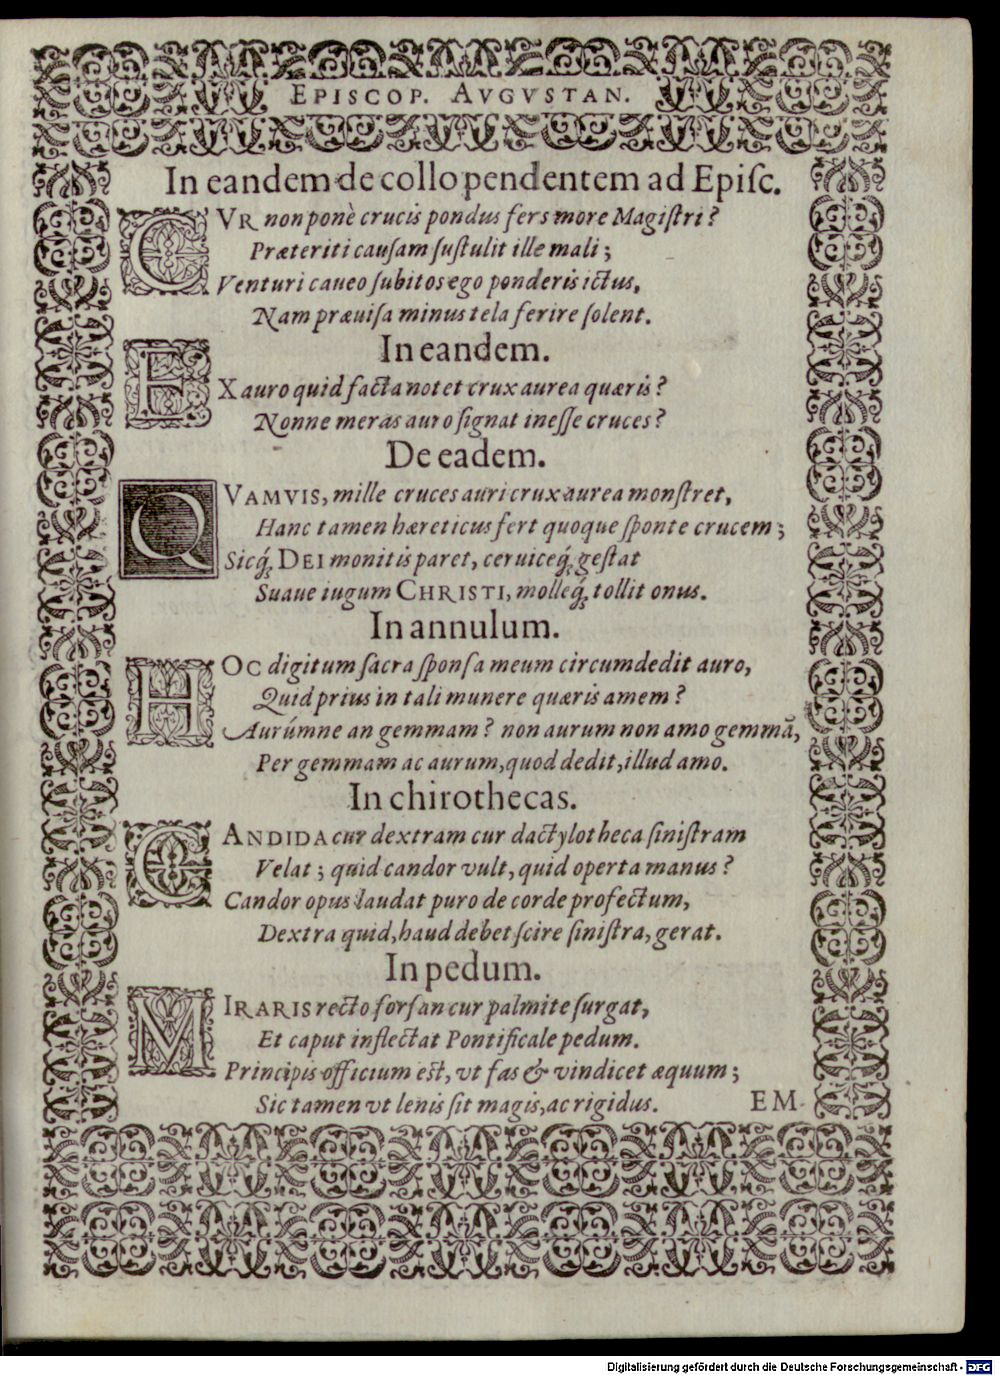 EPISCOP. AVGVSTAN.
In eandem de collo pendentem ad Episc.
CVR non ponè crucis pondus fers more Magistri?
Præteriti causam sustulit ille mali;
Venturi caueo subitos ego ponderis ictus,
Nam præuisa minus tela ferire solent.
In eandem.
EX auro quid facta notet crux aurea quæris?
Nonne meras auro signat inesse cruces?
De eadem.
QVAMVIS, mille cruces auri crux aurea monstret,
Hanc tamen hæreticus fert quoque sponte crucem;
Sicq́; DEI monitis paret, ceruiceq́; gestat
Suaue iugum CHRISTI, molleq́; tollit onus.
In annulum.
HOC digitum sacra sponsa meum circumdedit auro,
Quid prius in tali munere quæris amem?
Aurúmne an gemmam? non aurum non amo gemmā,
Per gemmam ac aurum, quod dedit, illud amo.
In chirothecas.
CANDIDA cur dextram cur dactylotheca sinistram
Velat; quid candor vult, quid operta manus?
Candor opus laudat puro de corde profectum,
Dextra quid, haud debet scire sinistra, gerat.
In pedum.
MIRARIS recto forsan cur palmite surgat,
Et caput inflectat Pontificale pedum.
Principis officium est, vt fas & vindicet æquum;
Sic tamen vt lenis sit magis, ac rigidus.
EM
Digitalisierung gefördert durch die Deutsche Forschungsgemeinschaft - DFG